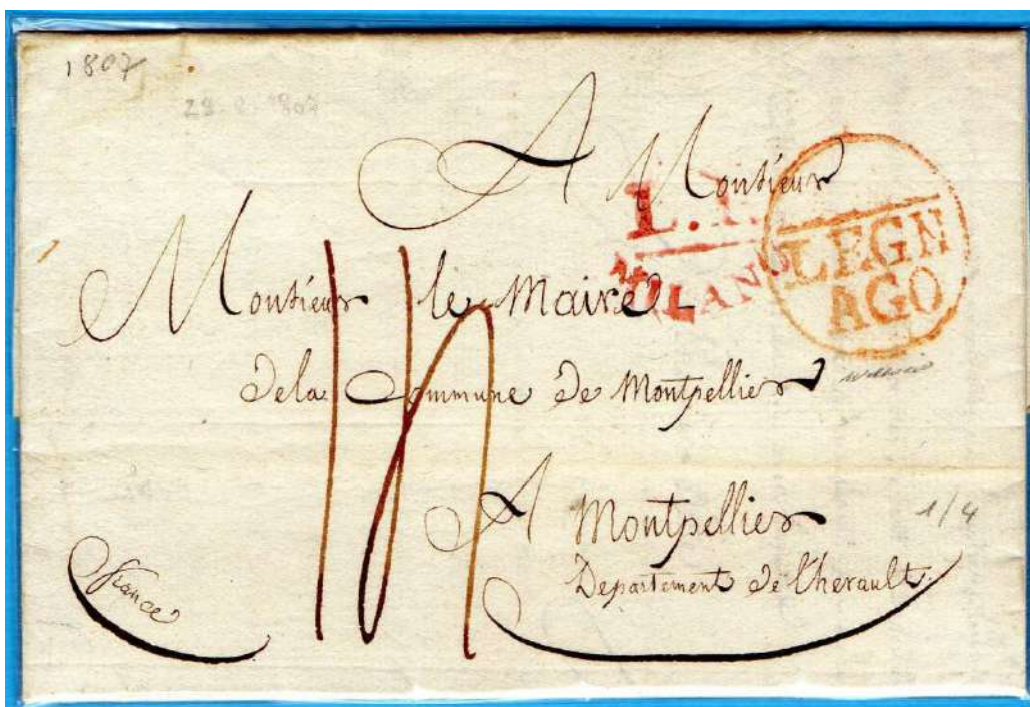 1807
A Monsieur
L.I.
MILANO
LEGN
AGO
Monsieur le Maire
de la Commune de Montpellier
A Montpellier
1/4
Departement de l'herault.
france